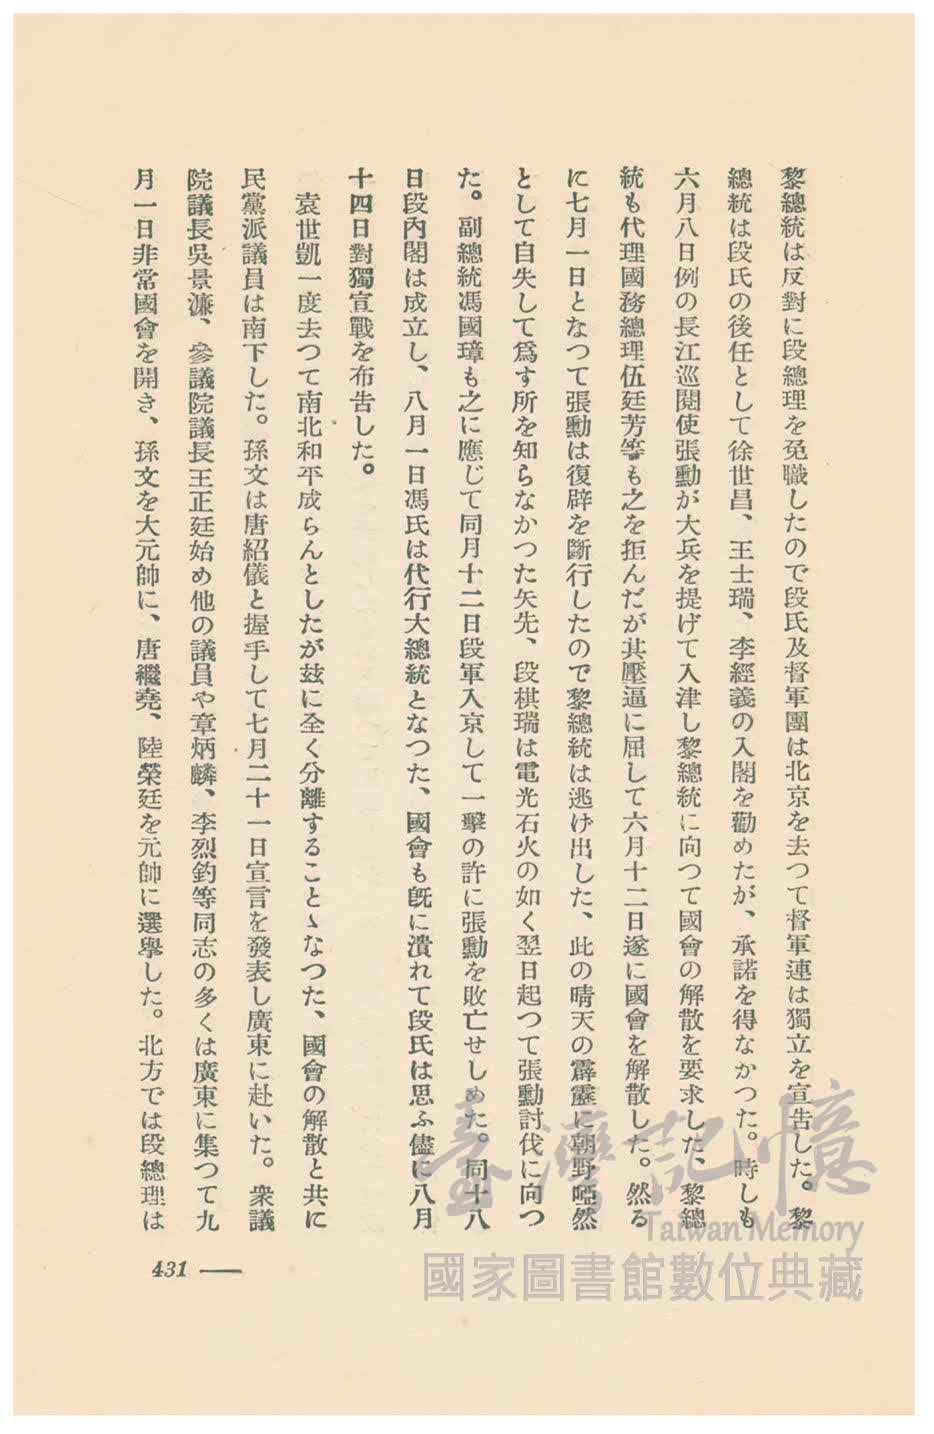 黎總統は反對に段總理を免職したので段氏及督軍團は北京を去つて督軍連は獨立を宣告した。黎
總統は段氏の後任として徐世昌、王士瑞、李經義の入閣を勸めたが、承諾を得なかつた。時しも
六月八日例の長江巡閱使張勳が大兵を提げて入津し黎總統に向つて國會の解散を要求した、黎總
統も代理國務總理伍廷芳等も之を拒んだが其壓逼に屈して六月十二日遂に國會を解散した。然る
に七月一日となつて張勳は復辟を斷行したので黎總統は逃げ出した、此の晴天の霹靂に朝野啞然
として自失して爲す所を知らなかつた矢先、段棋瑞は電光石火の如く翌日起つて張勳討伐に向つ
た。副總統馮國璋も之に應じて同月十二日段軍入京して一擊の許に張勳を敗亡せしめた。同十八
日段內閣は成立し、八月一日馮氏は代行大總統となつた、國會も旣に潰れて段氏は思ふ儘に八月
十四日對獨宣戰を布吿した。
袁世凱一度去つて南北和平成らんとしたが玆に全く分離することゝなつた、國會の解散と共に
民黨派議員は南下した。孫文は唐紹儀と握手して七月二十一日宣言を發表し廣東に赴いた。衆議
院議長吳景濂、參議院議長王正廷始め他の議員や章炳麟、李烈鈞等同志の多くは廣東に集つて九
月一日非常國會を開き、孫文を大元帥に、唐繼堯、陸榮廷を元帥に選擧した。北方では段總理は
431
臺灣記憶
Taiwan Memory
國家圖書館數位典藏